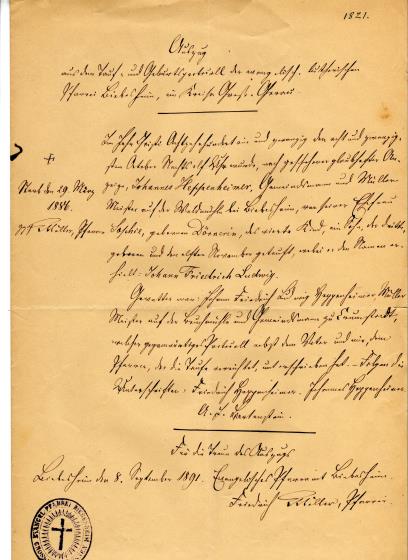 1821.
Auszug
aus dem Tauf- und Geburtsprotocoll der evangelisch-lutherischen
Pfarrei Biebesheim, im Kreise Groß-Gerau.
Im Jahr Christi Achtzehnhundert ein und zwanzig den acht und zwanzig-
sten October Nachts elf Uhr wurde, nach geschehener glaubhafter An-
zeige, Johannes Heppenheimer, Gemeindsmann und Müller
Meister auf der Waldmühle bei Biebesheim, von seiner Ehefrau
Sophie, geborenen das vierte Kind, ein Sohn, der dritte,
geboren und den elften November getauft, wobei er den Namen er-
hielt: Johann Friedrich Ludwig.
+
Starb den 29. März
1886.
Müller, Pfarrer
Gevatter war: Johann Friedrich Ludwig Heppenheimer, Müller
Meister auf der Bruchmühle und Gemeindsmann zu Crumstadt,
welcher gegenwärtiges Protocoll nebst dem Vater und mir, dem
Pfarrer, der die Taufe verrichtet, unterschrieben hat. – Folgen die
Unterschriften: Friedrich Heppenheimer. Johannes Heppenheimer.
Für die Treue des Auszugs
Biebesheim den 8. September 1891. Evangelisches Pfarramt Biebesheim.
Friedrich Müller, Pfarrer.